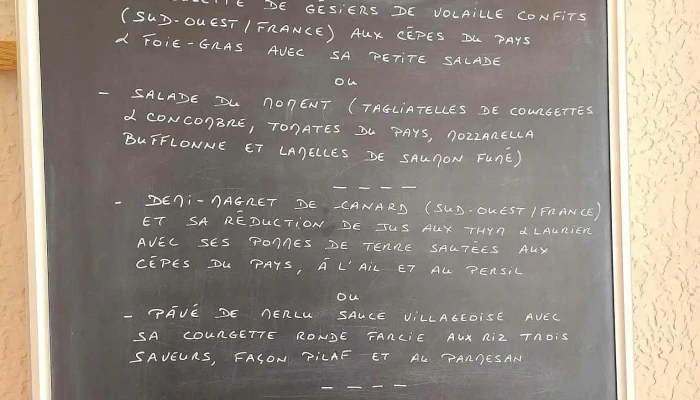 DE GÉSIERS DE VOLAILLE CONFITS
(SUD-OUEST/FRANCE) AUX CÈPES DU PAYS
& FOIE-GRAS AVEC SA PETITE SALADE
OU
- SALADE DU MOMENT (TAGLIATELLES DE COURGETTES
& CONCOMBRE, TOMATES DU PAYS, MOZZARELLA
BUFFLONNE ET LAMELLES DE SAUMON FUMÉ)
----
- DEMI-MAGRET DE CANARD (SUD-OUEST/FRANCE)
ET SA RÉDUCTION DE JUS AUX THYM & LAURIER
AVEC SES POMMES DE TERRE SAUTÉES AUX
CÈPES DU PAYS, À L'AIL ET AU PERSIL
OU
- PÂVÉ DE MERLU SAUCE VILLAGEOISE AVEC
SA COURGETTE RONDE FARCIE AUX RIZ TROIS
SAVEURS, FAÇON PILAF ET AU PARMESAN
----